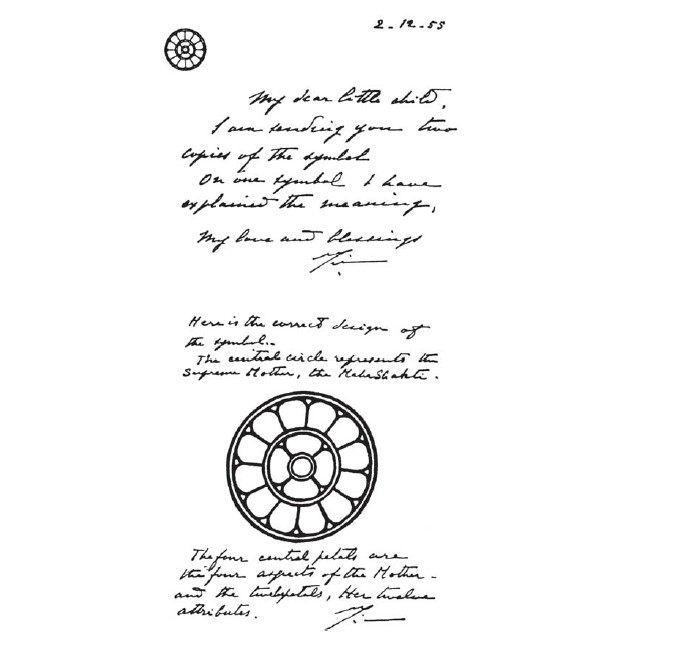 2-12-55
My dear little child,
I am sending you two
copies of the symbol
On one symbol I have
explained the meaning,
My love and blessings
Here is the correct design of
the symbol.
The central circle represents the
Supreme Mother, the MahaShakti.
The four central petals are
the four aspects of the Mother -
and the twelve petals, Her twelve
attributes.